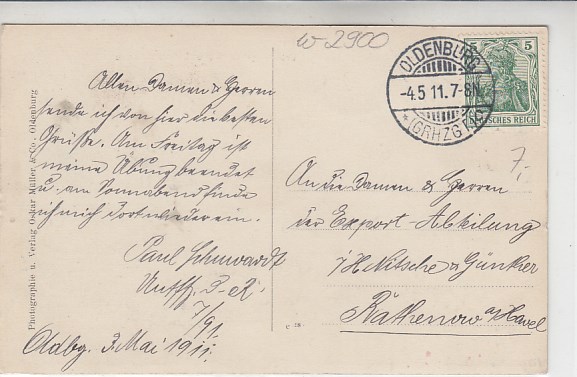 w 2900
OLDENBURG
-4.5 11.7-8N.
*(GRHZGT.)
5
DEUTSCHES REICH
7,-
Allen Damen & Herren
sende ich von hier die besten
Grüsse. Am Freitag ist
meine Übung beendet
u. am Sonnabend finde
ich mich dort wieder ein.
Paul Schwardt
Untffz. d. R.
7/91.
Oldbg. 3. Mai 1911.
An die Damen & Herren
der Export Abteilung
Nitsche & Günther
Rathenow a/Havel
Photographie u. Verlag Oskar Müller & Co., Oldenburg